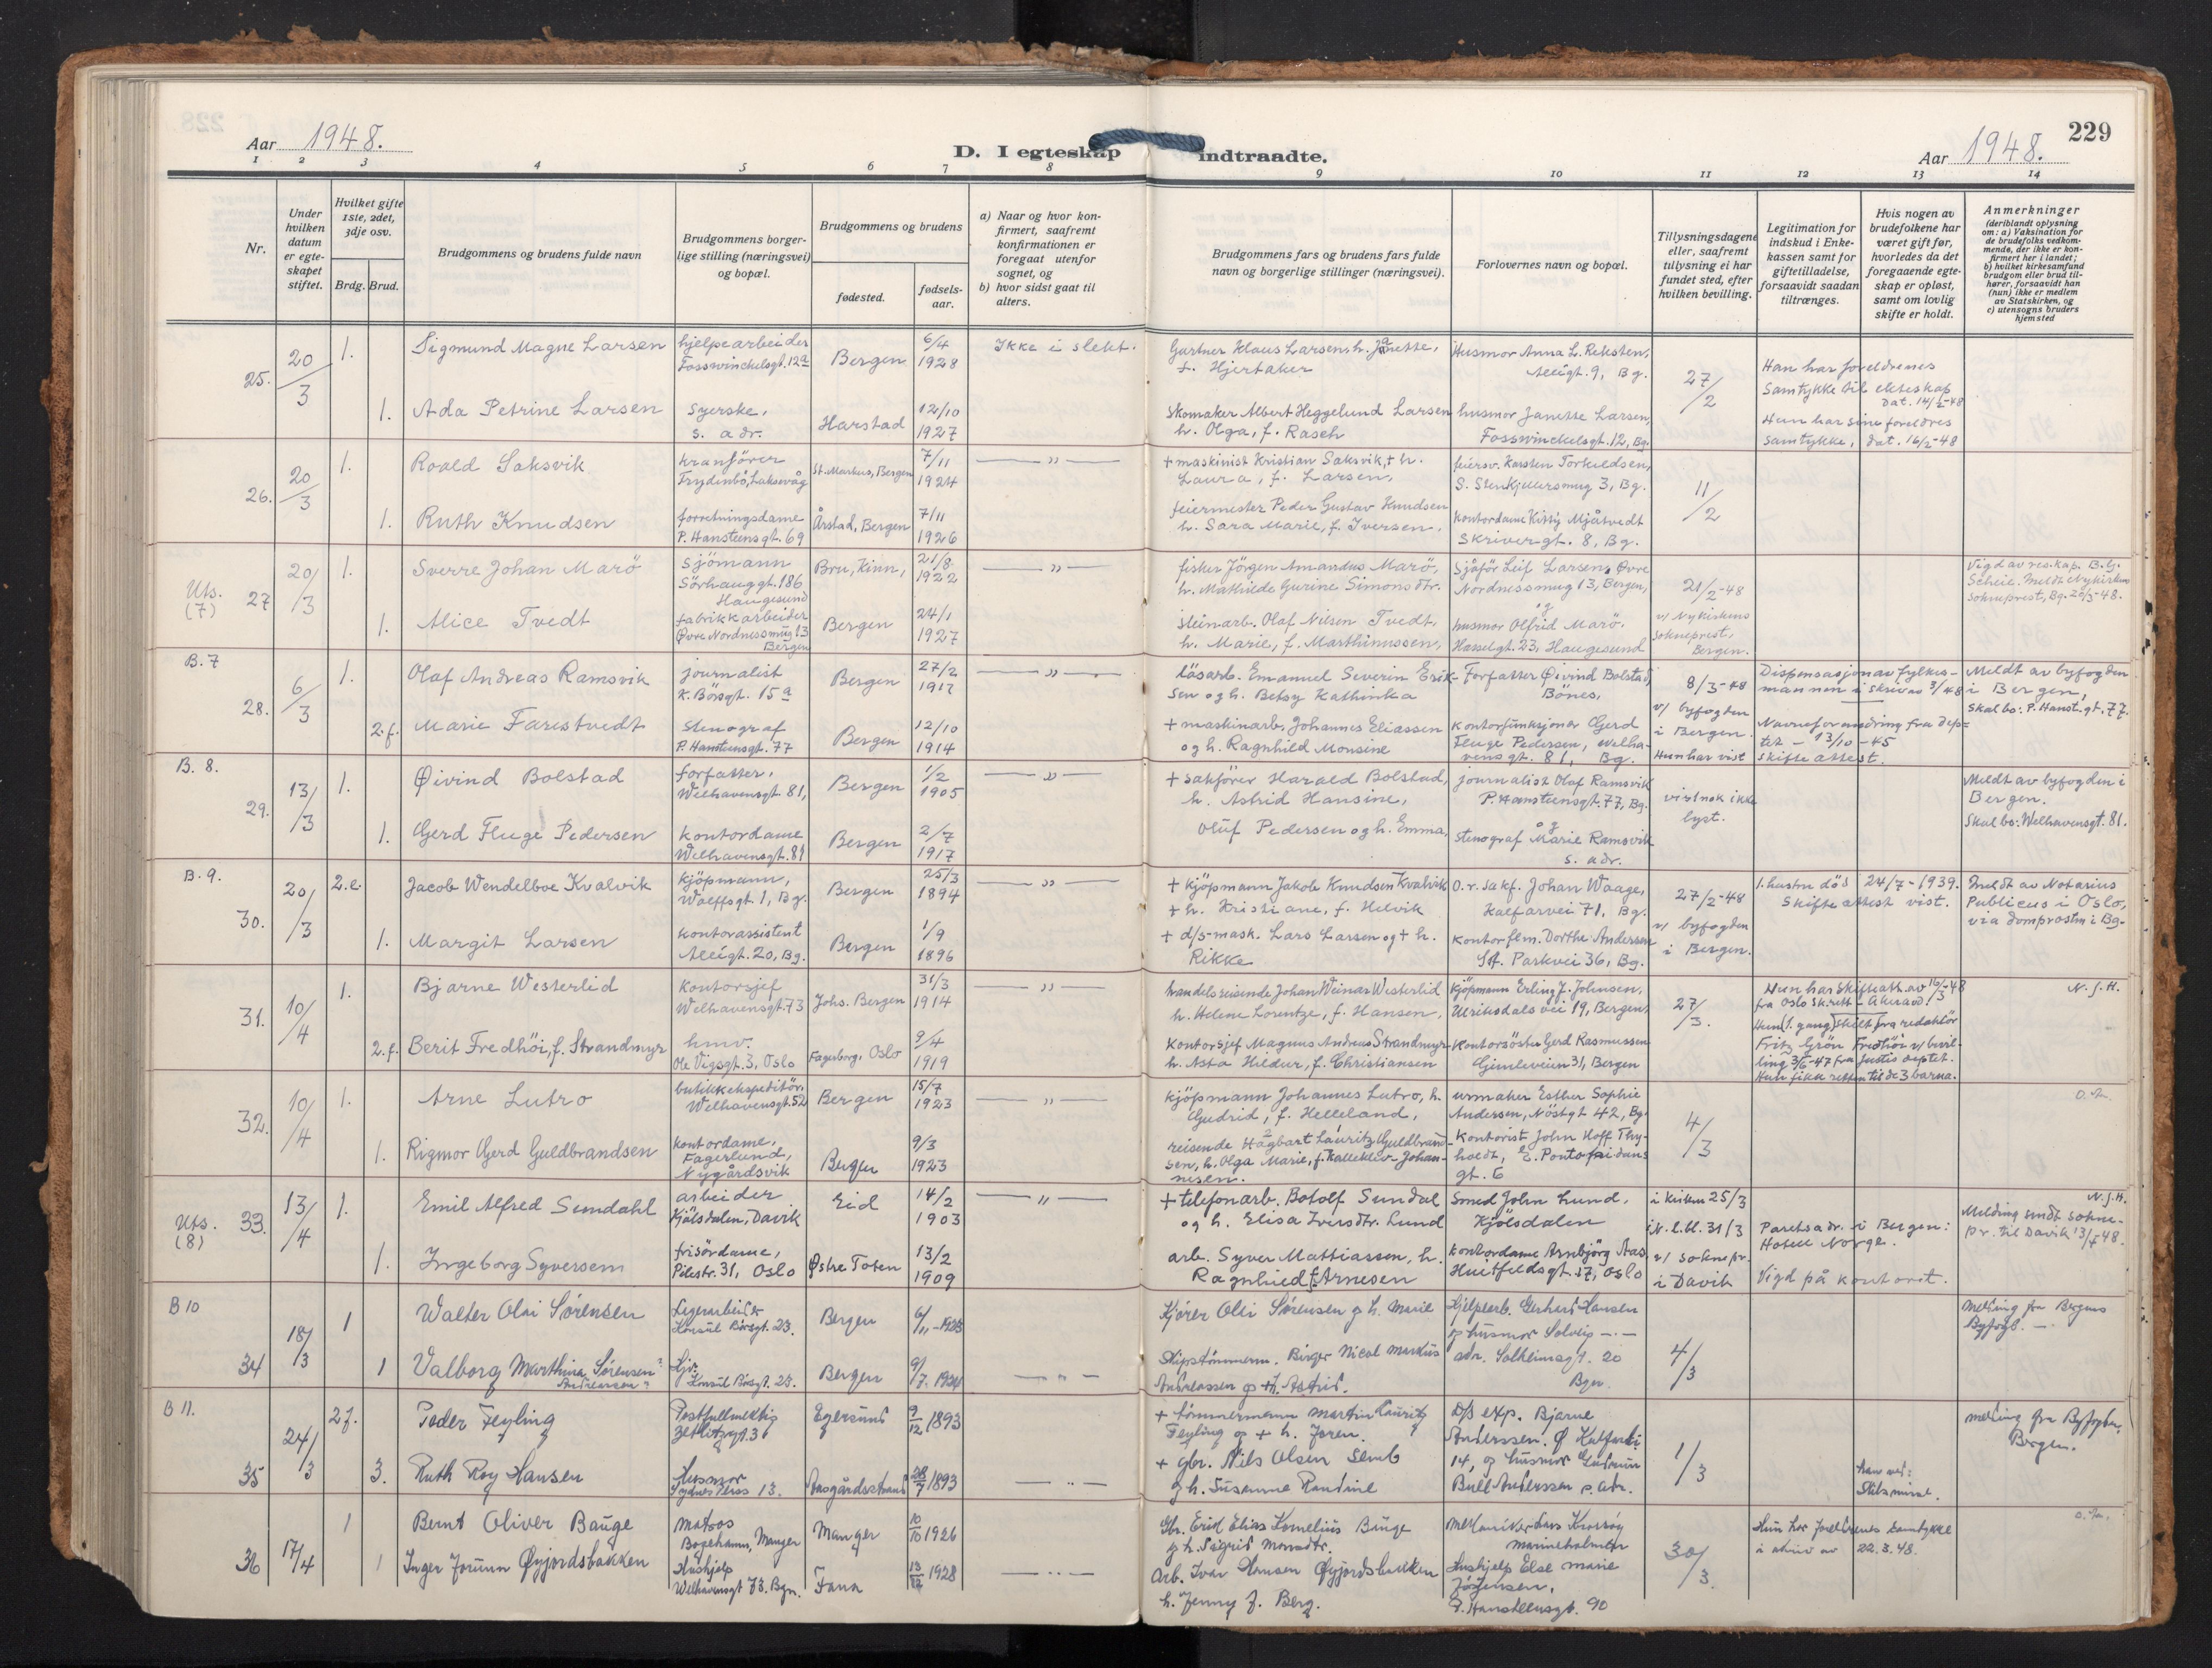 229
Aar 1948.
D. I egteskap indtraadte.
Aar 1948.
1 2 3 4 5 6 7 8 9 10 11 12 13 14
Nr.
Under hvilken datum er egteskapet stiftet.
Hvilket gifte 1ste, 2det, 3dje osv.
Brdg. Brud.
Brudgommens og brudens fulde navn
Brudgommens borgerlige stilling (næringsvei) og bopæl.
Brudgommens og brudens
fødested.
fødselsaar.
a) Naar og hvor konfirmert, saafremt konfirmationen er foregaat utenfor sognet, og
b) hvor sidst gaat til alters.
Brudgommens fars og brudens fars fulde navn og borgerlige stillinger (næringsvei).
Forlovernes navn og bopæl.
Tillysningsdagene eller, saafremt tillysning ei har fundet sted, efter hvilken bevilling.
Legitimation for indskud i Enkekassen samt for giftetilladelse, forsaavidt saadan tiltrænges.
Hvis nogen av brudefolkene har været gift før, hvorledes da det foregaaende egteskap er opløst, samt om lovlig skifte er holdt.
Anmerkninger
(deriblandt oplysning om: a) Vaksination for de brudefolks vedkommende, der ikke er konfirmert her i landet;
b) hvilket kirkesamfund brudgom eller brud tilhører, forsaavidt han (hun) ikke er medlem av Statskirken, og
c) utensogns bruders hjemsted
25. 20/3 1. Sigmund Magne Larsen hjelpearbeider Fosswinckelsgt. 12a Bergen 6/4 1928 Ikke i slekt. Gartner Klaus Larsen, h. Janette, f. Hjertaker Husmor Anna L. Reksten, Allégt. 9, Bg. 27/2 Han har foreldrenes samtykke til ekteskap dat. 14/2-48
1. Ada Petrine Larsen syerske, s. adr. Harstad 12/10 1927 Skomaker Albert Heggelund Larsen h. Olga, f. Rasch husmor Janette Larsen, Fosswinckelsgt. 12, Bg. Hun har sine foreldres samtykke, dat. 16/2-48
26. 20/3 1. Roald Saksvik kranfører Frydenbö, Laksevåg St. Markus, Bergen 7/11 1924 —"— + maskinist Kristian Saksvik, + h. Laura, f. Larsen, feiersv. Karsten Torkildsen, S. Stenkjellersmug 3, Bg. 11/2
1. Ruth Knudsen forretningsdame P. Hansteensgt. 69 Årstad, Bergen 7/11 1926 feiermester Peder Gustav Knudsen h. Sara Marie, f. Iversen, kontordame Kitty Mjåtvedt Skrivergt. 8, Bg.
Uts. (7) 27 20/3 1. Sverre Johan Marö sjömann Sörhauggt. 186 Haugesund Bru, Kinn, 21/8 1922 —"— fisker Jörgen Amandus Marö, h. Mathilde Gurine Simonsdtr. Sjåför Leif Larsen, Øvre Nordnessmug 13, Bergen, og 21/2-48 v/ Nykirkens sokneprest, Bergen. Vigd av res. kap. B. Lj. Scheie. Meldt Nykirkens sokneprest, Bg. 20/3-48.
1. Alice Tvedt fabrikkarbeider Øvre Nordnessmug 13 Bergen Bergen 24/1 1927 steinarb. Olaf Nilsen Tvedt, h. Marie, f. Marthinussen, husmor Olfrid Marö. Hasselgt. 23, Haugesund
B. 7 28. 6/3 1. Olaf Andreas Ramsvik journalist K. Börsgt. 15a Bergen 27/2 1912 —"— lösarb. Emanuel Severin Eriksen og h. Betsy Kathinka Forfatter Øivind Bolstad, Bönes, 8/3-48 v/ byfogden i Bergen. Dispensasjon av fylkesmannen i skriv av 3/48 Meldt av byfogden i Bergen, Skal bo: P. Hanst. gt. 77.
2.f. Marie Farestvedt stenograf P. Hansteensgt. 77 Bergen 12/10 1914 + maskinarb. Johannes Eliassen og h. Ragnhild Monsine kontorfunksjonær Gerd Fluge Pedersen, Welhavensgt. 81, Bg. Navneforandring fra deptet – 13/10-45 Hun har vist skifteattest.
B. 8. 29. 13/3 1. Øivind Bolstad forfatter, Welhavensgt. 81, Bergen 1/2 1905 —"— + sakförer Harald Bolstad, h. Astrid Hansine, journalist Olaf Ramsvik P. Hansteensgt. 77, Bg. og visstnok ikke lyst. Meldt av byfogden i Bergen. Skal bo: Welhavensgt. 81.
1. Gerd Fluge Pedersen kontordame Welhavensgt. 81 Bergen 2/7 1917 Oluf Pedersen og h. Emma, stenograf Marie Ramsvik s. adr.
B. 9. 30. 20/3 2.e. Jacob Wendelboe Kvalvik kjöpmann, Wolffsgt. 1, Bg. Bergen 25/3 1894 —"— + kjöpmann Jakob Knudsen Kvalvik + h. Kristiane, f. Helvik O.r. sakf. Johan Waage, Kalfarvei 71, Bg. 27/2-48 v/ byfogden i Bergen. 1. hustru död 24/7-1939. Skifteattest vist. Meldt av Notarius Publicus i Oslo, via domprosten i Bg.
1. Margit Larsen kontorassistent Allégt. 20, Bg. Bergen 1/9 1896 + d/s-mask. Lars Larsen og + h. Rikke kontorflm. Dorthe Andersen St. Parkvei 36, Bg.
31. 10/4 1. Bjarne Westerlid kontorsjef Welhavensgt. 73 Johs. Bergen 31/3 1914 —"— handelsreisende Johan Weinar Westerlid h. Helene Lorentze, f. Hansen, kjöpmann Erling J. Johnsen, Ulriksdalsvei 19, Bergen, 27/3. Hun har skifteatt. av 16/3-48 fra Oslo Sk.rett – Akeravd. N.J.H.
2.f. Berit Fredhöi, f. Strandmyr hmv. Ole Vigsgt. 3, Oslo Fagerborg, Oslo 9/4 1919 kontorsjef Magnus Andreas Strandmyr h. Asta Hildur, f. Christiansen kontorsöster Gerd Rasmussen Gimleveien 31, Bergen Hun 1. gang skilt fra redaktör Fritz Grön Fredhöi v/ bevilling 3/6-47 fra Justisdeptet. Hun fikk retten til de 3 barna.
32. 10/4 1. Arne Lutro butikkekspeditör Welhavensgt. 52 Bergen 15/7 1923 —"— kjöpmann Johannes Lutro, h. Gudrid, f. Helleland, urmaker Esther Sophie Andersen, Nöstgt 42, Bg. 4/3
1. Rigmor Gerd Guldbrandsen kontordame, Fagerlund, Nygårdsvik Bergen 9/3 1923 reisende Hagbart Lauritz Guldbrandsen, h. Olga Marie, f. Kallekleiv-Johannesen. Kontorist John Hoff Thyholdt, E. Pontoppidans gt. 6
Uts. (8) 33. 13/4 1. Emil Alfred Sundahl arbeider Kjölsdalen, Davik Eid 14/2 1903 —"— + telefonarb. Botolf Sundal og h. Elisa Iversdtr. Lund Smed John Lund, Kjölsdalen i kirken 25/3 i N.l.bl. 31/3 v/ soknepr. i Davik Paretsadr. i Bergen: Hotell Norge. N.J.H. Melding sendt sokne-pr. til Davik 13/4 48.
1. Ingeborg Syversen frisördame, Pilestr. 31, Oslo Østre Toten 13/2 1909 arb. Syver Mattiassen, h. Ragnhild f. Arnesen kontordame Arnbjörg Aas, Huitfeldsgt. 17, Oslo Vigd på kontoret.
B 10 34 18/3 1 Walter Olai Sörensen Lagerarbeider Konsul Börsgt. 23. Bergen 6/11-1925 Kjörer Olai Sörensen og h. Marie Hjelpearb. Gerhard Hansen og husmor Solveig –"– adr. Solheimsgt. 20 Bgn. 4/3 Melding fra Bergens Byfogd.
1 Valborg Marthina Sörensen? Andreassen? Hjv. Konsul Börsgt. 23. Bergen 9/7 1924 —"— Skipstömmerm. Birger Nicol Markus Andreassen og + h. Astrid.
B 11. 35 24/3 2f. Peder Feyling Postfullmektig Zetlitzgt. 36 Egersund 9/12 1893 + tömmermann Martin Lauritz Feyling og + h. Joren. D/S exp. Bjarne Anderssen. Ø Kalfarli 14, og husmor Gudrun Bull Anderssen s. adr. 1/3 melding fra Byfogden, Bergen.
3. Ruth Roy Hansen Husmor Sydnes Plass 13. Aasgårdsstrand 28/7 1893 —"— + gbr. Nils Olsen Semb og h. Susanne Randine
36 17/4 1 Bernt Oliver Bauge matros Bögehamn, Manger Manger 10/10 1926 Gbr. Erid Elias Kornelius Bauge og h. Sigrid Monsdtr. Mekaniker Lars Krossöy Marineholmen 30/3. Hun har foreldrenes samtykke i skriv av 22.3.48.
1 Inger Jorunn Øyjordsbakken Hushjelp Welhavensgt 73. Bgn. Fana 13/12 1928 —"— Arb. Ivar Hansen Øyjordsbakken h. Jenny f. Berg. Hushjelp Else Marie Jörgensen, P. Hansteensgt. 90